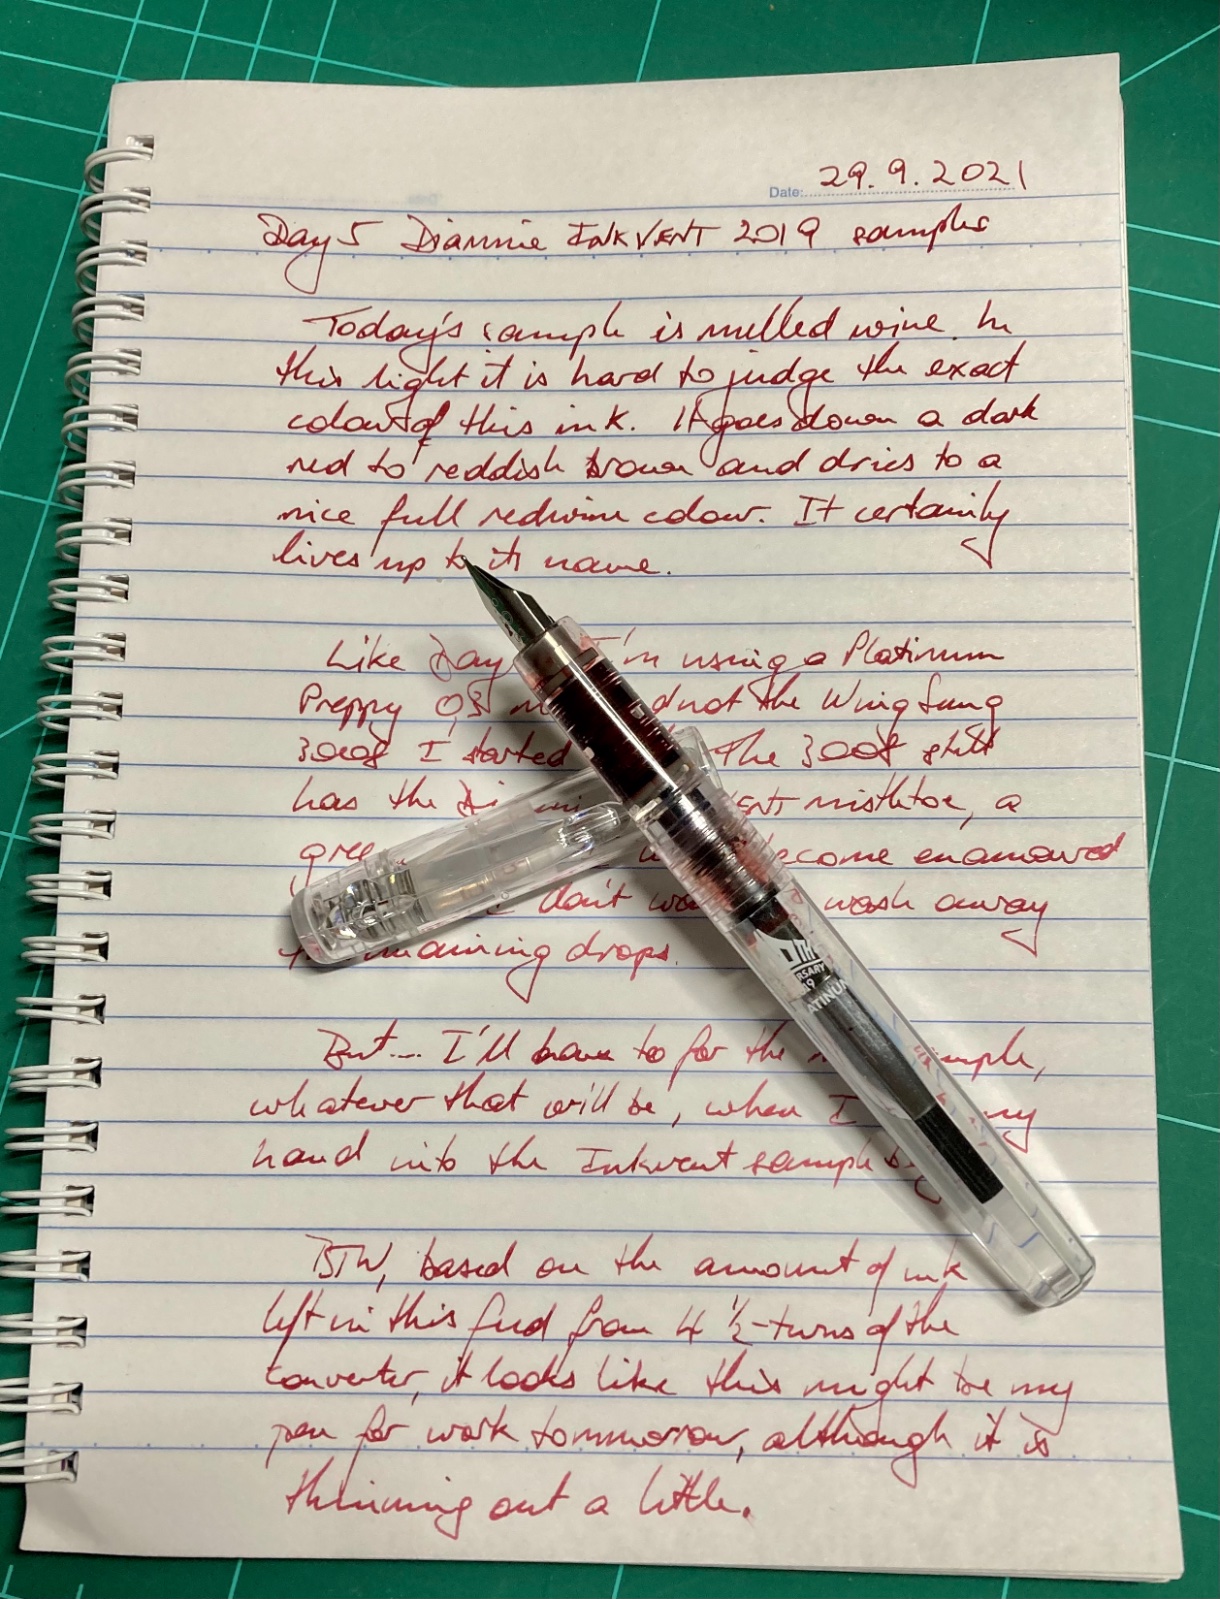 Date: 29.9.2021
Day 5 Diamine INKVENT 2019 samples
Today's sample is mulled wine. In
this light it is hard to judge the exact
colour of this ink. It goes down a dark
red to reddish brown and dries to a
nice full redwine colour. It certainly
lives up to its name.
Like Day I'm using a Platinum
Preppy 03 not the Wing Sung
3008 I started The 3008 still
has the mistletoe, a
become enamoured
I don't wash away
remaining drops.
But... I'll have to for the sample,
whatever that will be, when I my
hand into the Inkvent sample
BTW, based on the amount of ink
left in this feed from 4 ½-turns of the
converter, it looks like this might be my
pen for work tommorrow, although it is
thinning out a little.